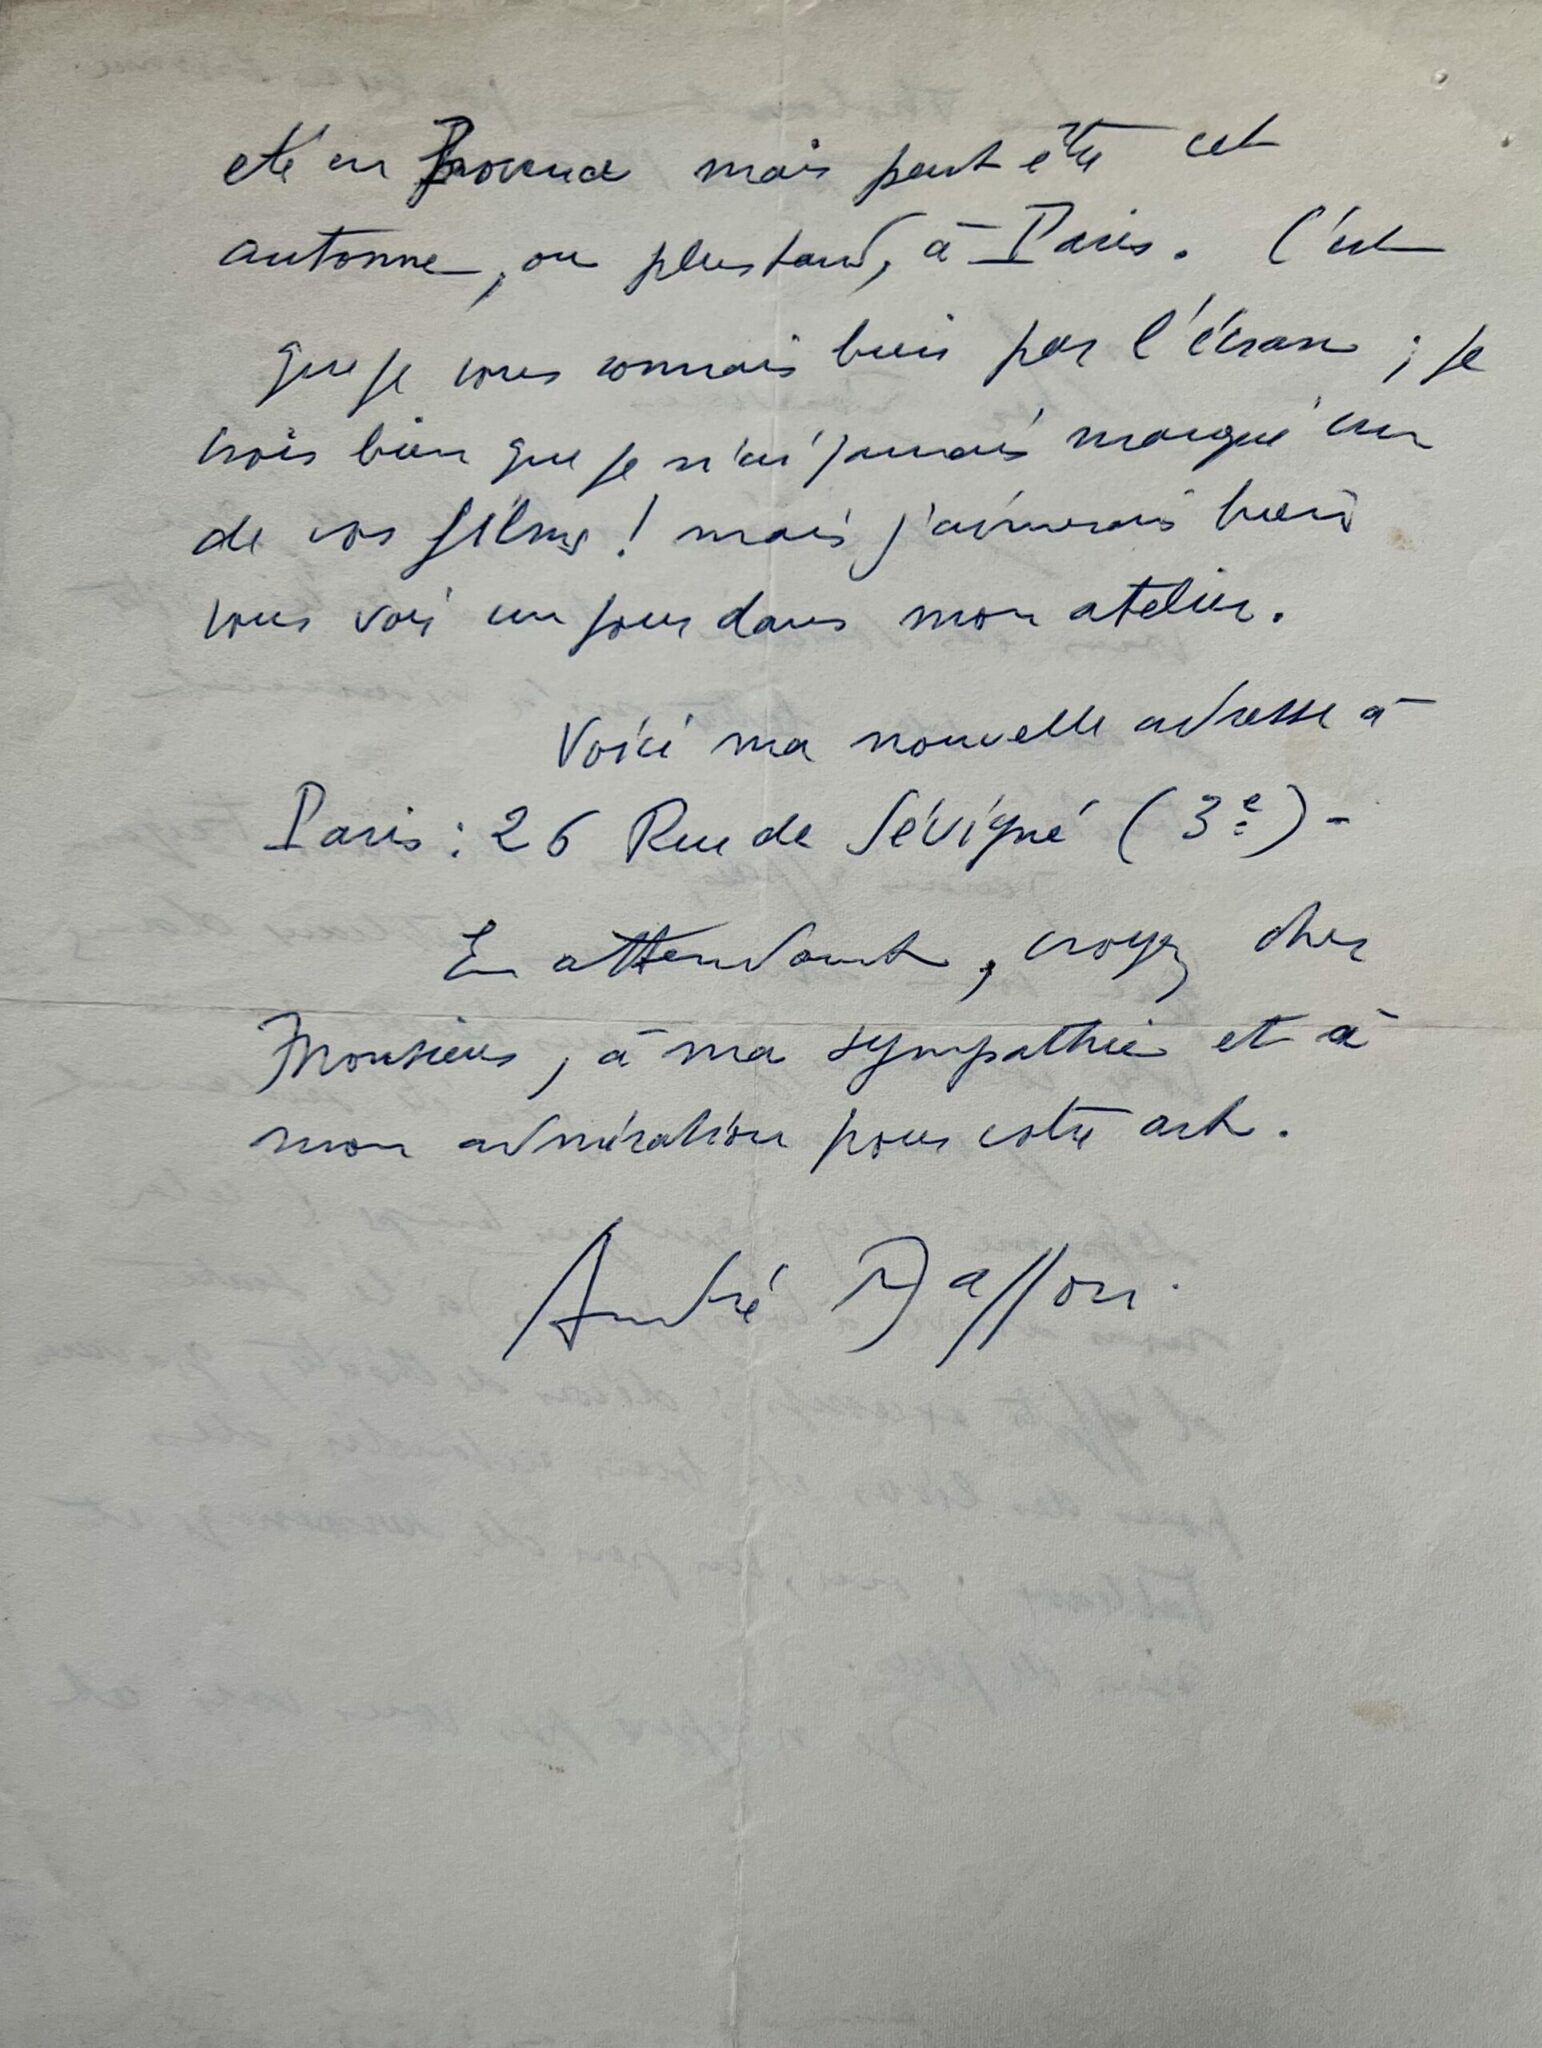 été en Provence mais peut être cet
automne, ou plus tard, à Paris. C'est
que je vous connais bien par l'écran ; je
crois bien que je n'ai jamais manqué un
de vos films ! mais j'aimerais bien
vous voir un jour dans mon atelier.
Voici ma nouvelle adresse à
Paris : 26 Rue de Sévigné (3e) -
En attendant, croyez cher
Monsieur, à ma sympathie et à
mon admiration pour votre art.
André Masson.